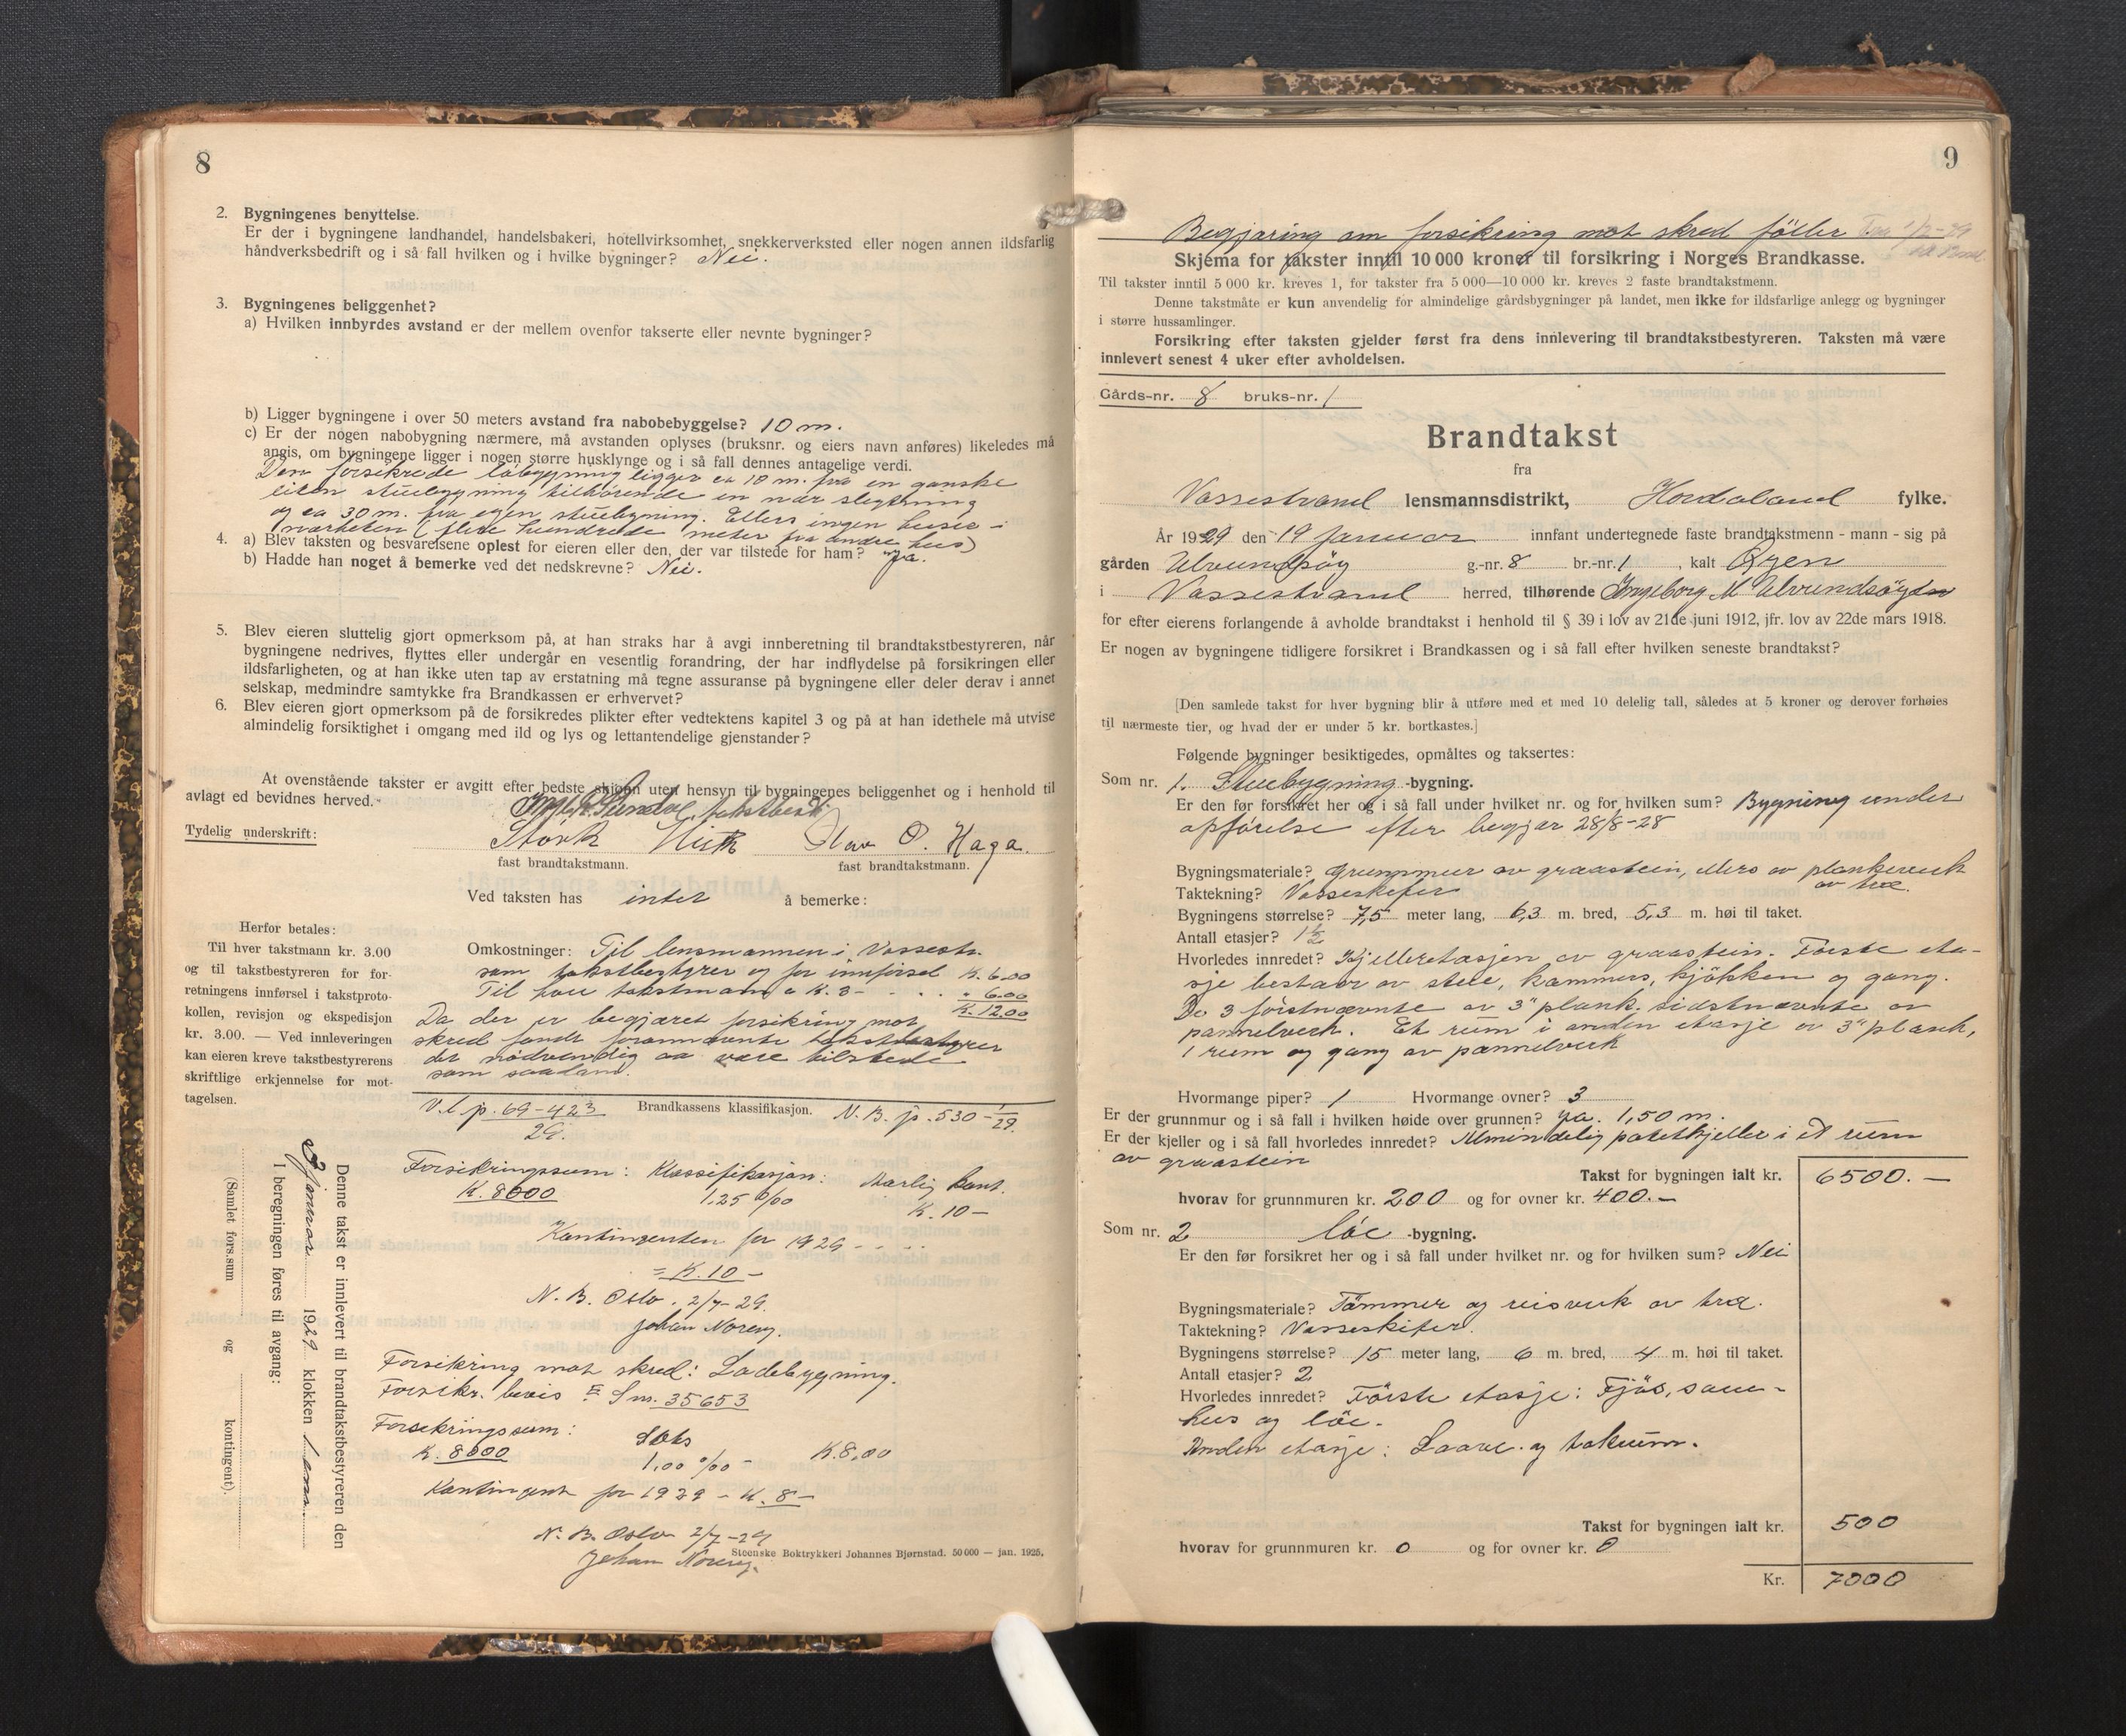 8
2. Bygningenes benyttelse.
Er der i bygningene landhandel, handelsbakeri, hotellvirksomhet, snekkerverksted eller nogen annen ildsfarlig
håndverksbedrift og i så fall hvilken og i hvilke bygninger? Nei.
3. Bygningenes beliggenhet?
a) Hvilken innbyrdes avstand er der mellem ovenfor takserte eller nevnte bygninger?
b) Ligger bygningene i over 50 meters avstand fra nabobebyggelse? 10 m.
c) Er der nogen nabobygning nærmere, må avstanden oplyses (bruksnr. og eiers navn anføres) likeledes må
angis, om bygningene ligger i nogen større husklynge og i så fall dennes antagelige verdi.
Den forsikrede løbygning ligger ca 10 m. fra en ganske
liten stuebygning tilhørende en nær slegtning
og ca 30 m. fra egen stuebygning. Ellers ingen huse i
nærheten (flere hundrede meter fra andre hus)
4. a) Blev taksten og besvarelsene oplest for eieren eller den, der var tilstede for ham? Ja.
b) Hadde han noget å bemerke ved det nedskrevne? Nei.
5. Blev eieren sluttelig gjort opmerksom på, at han straks har å avgi innberetning til brandtakstbestyreren, når
bygningene nedrives, flyttes eller undergår en vesentlig forandring, der har indflydelse på forsikringen eller
ildsfarligheten, og at han ikke uten tap av erstatning må tegne assuranse på bygningene eller deler derav i annet
selskap, medmindre samtykke fra Brandkassen er erhvervet?
6. Blev eieren gjort opmerksom på de forsikredes plikter efter vedtektens kapitel 3 og på at han idethele må utvise
almindelig forsiktighet i omgang med ild og lys og lettantendelige gjenstander?
At ovenstående takster er avgitt efter bedste skjønn uten hensyn til bygningenes beliggenhet og i henhold til
avlagt ed bevidnes herved.
takstbest.
Tydelig underskrift:
Olav O. Haga.
fast brandtakstmann. fast brandtakstmann.
Ved taksten has intet å bemerke:
Herfor betales:
Til hver takstmann kr. 3.00
og til takstbestyreren for for-
retningens innførsel i takstproto-
kollen, revisjon og ekspedisjon
kr. 3.00. — Ved innleveringen
kan eieren kreve takstbestyrerens
skriftlige erkjennelse for mot-
tagelsen.
Omkostninger: Til lensmannen i Vossestr.
som takstbestyrer og for innførsel K. 6.00
Til hver takstmann a K. 3 - " 6.00
K. 12.00
Da der er begjæret forsikring mot
skred fandt forannævnte takstbestyrer
det nødvendig aa være tilstede
som saadan.
V.l. p. 69-423 Brandkassens klassifikasjon. N. B. jr. 530-1/29.
29.
Forsikringssum: Klassifikasjon: Aarlig kont.
K. 8000 1.25 0/00 K. 10 —
Kontingenten for 1929 - - - -
= K. 10 —
N. B. Oslo. 2/7-29.
Johan Noreng.
Forsikring mot skred: Ladebygning.
Forsikr. bevis Sm. 35653
Forsikringssum: Sats
K. 8000 1,00 0/00 - K. 8,00
Kontingent for 1929 - K. 8 —
N. B. Oslo 2/7-29
Johan Noreng.
Steenske Boktrykkeri Johannes Bjørnstad. 50 000 — jan. 1925.
Denne takst er innlevert til brandtakstbestyreren den
januar 1929 klokken
I beregningen føres til avgang:
(Samlet fors.sum og kontingent).
9
Begjæring om forsikring mot skred følger
Skjema for takster inntil 10 000 kroner til forsikring i Norges Brandkasse.
Til takster inntil 5 000 kr. kreves 1, for takster fra 5 000—10 000 kr. kreves 2 faste brandtakstmenn.
Denne takstmåte er kun anvendelig for almindelige gårdsbygninger på landet, men ikke for ildsfarlige anlegg og bygninger
i større hussamlinger.
Forsikring efter taksten gjelder først fra dens innlevering til brandtakstbestyreren. Taksten må være
innlevert senest 4 uker efter avholdelsen.
Gårds-nr. 8 bruks-nr. 1
Brandtakst
fra
Vossestrand lensmannsdistrikt, Hordaland fylke.
År 1929 den 19 Januar innfant undertegnede faste brandtakstmenn - mann - sig på
gården Ulvundsøy g.-nr. 8 br.-nr. 1, kalt Øyen
i Vossestrand herred, tilhørende Ingeborg M Ulvundsøyen
for efter eierens forlangende å avholde brandtakst i henhold til § 39 i lov av 21de juni 1912, jfr. lov av 22de mars 1918.
Er nogen av bygningene tidligere forsikret i Brandkassen og i så fall efter hvilken seneste brandtakst?
[Den samlede takst for hver bygning blir å utføre med et med 10 delelig tall, således at 5 kroner og derover forhøies
til nærmeste tier, og hvad der er under 5 kr. bortkastes.]
Følgende bygninger besiktigedes, opmåltes og taksertes:
Som nr. 1. Stuebygning -bygning.
Er den før forsikret her og i så fall under hvilket nr. og for hvilken sum? Bygning under
opførelse efter begjær 28/8-28
Bygningsmateriale? Grunnmur av graastein, ellers av plankeverk
av træ.
Taktekning? Vosseskifer
Bygningens størrelse? 7,5 meter lang, 6,3 m. bred, 5,3 m. høi til taket.
Antall etasjer? 1½
Hvorledes innredet? Kjelleretasjen av graastein. Første eta-
sje bestaar av stue, kammers, kjøkken og gang.
De 3 førstnævnte av 3" plank, sidstnævnte av
pannelverk. Et rum i anden etasje av 3" plank,
1 rum og gang av pannelverk
Hvormange piper? 1 Hvormange ovner? 3
Er der grunnmur og i så fall i hvilken høide over grunnen? Ja. 1,50 m.
Er der kjeller og i så fall hvorledes innredet? Almindelig potetkjeller i et rum
av graastein
Takst for bygningen ialt kr. 6500.—
hvorav for grunnmuren kr. 200 og for ovner kr. 400.—
Som nr. 2 løe -bygning.
Er den før forsikret her og i så fall under hvilket nr. og for hvilken sum? Nei
Bygningsmateriale? Tømmer og reisverk av træ.
Taktekning? Vosseskifer.
Bygningens størrelse? 15 meter lang, 6 m. bred, 4 m. høi til taket.
Antall etasjer? 2
Hvorledes innredet? Første etasje: Fjøs, saue-
hus og løe.
Anden etasje: Laave og
Takst for bygningen ialt kr. 500
hvorav for grunnmuren kr. 0 og for ovner kr. 0
Kr. 7000